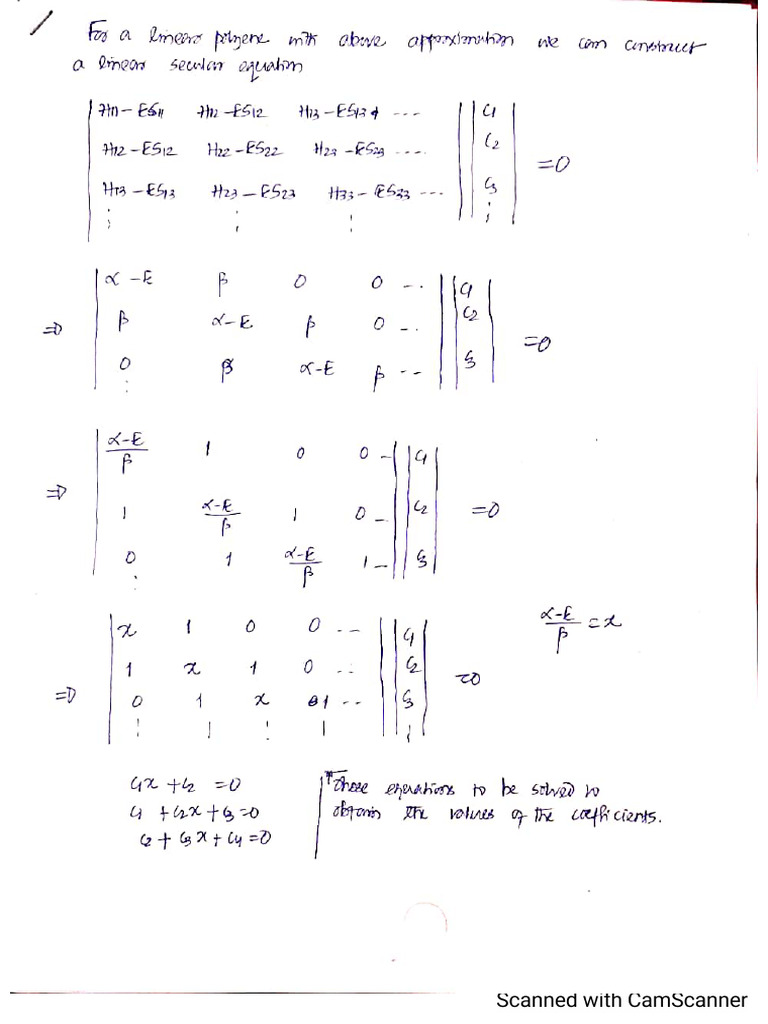 For a linear polyene with above approximation we can construct
a linear secular equation
H11 - ES11 H12 - ES12 H13 - ES13 ... C1
H12 - ES12 H22 - ES22 H23 - ES23 .... C2
= 0
H13 - ES13 H23 - ES23 H33 - ES33 ... C3
⋮ ⋮ ⋮ ⋮
α - E β 0 0 ... C1
⇒ β α - E β 0 ... C2
= 0
0 β α - E β -- C3
⋮
α-E/β 1 0 0 - C1
⇒ 1 α-E/β 1 0 -- C2 = 0
0 1 α-E/β 1 -- C3
⋮
α-E/β = x
x 1 0 0 -- C1
1 x 1 0 .. C2
= 0
⇒ 0 1 x 1 -- C3
⋮ | ⋮ | ⋮
C1x + C2 = 0
C1 + C2x + C3 = 0
C2 + C3x + C4 = 0
*These equations to be solved to
obtain the values of the coefficients.
Scanned with CamScanner